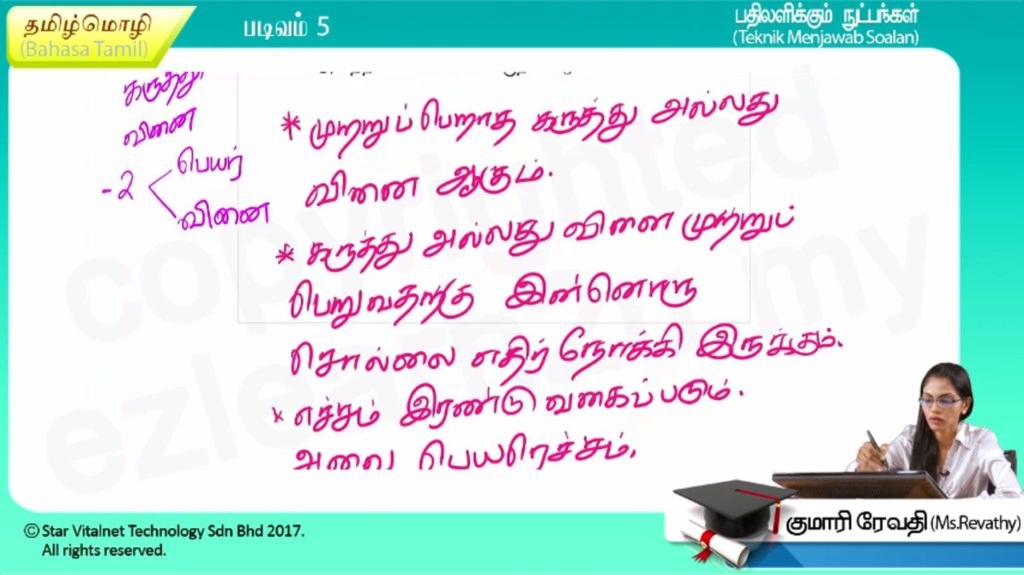 தமிழ்மொழி
(Bahasa Tamil)
படிவம் 5
பதிலளிக்கும் நுட்பங்கள்
(Teknik Menjawab Soalan)
கருத்து
வினை
-2
பெயர்
வினை
* முற்றுப்பெறாத கருத்து அல்லது
வினை ஆகும்.
* கருத்து அல்லது வினை முற்றுப்
பெறுவதற்கு இன்னொரு
சொல்லை எதிர்நோக்கி இருக்கும்.
* எச்சம் இரண்டு வகைப்படும்.
அவை பெயரெச்சம்,
copyrighted
ezlearn2 my
குமாரி ரேவதி (Ms.Revathy)
© Star Vitalnet Technology Sdn Bhd 2017.
All rights reserved.